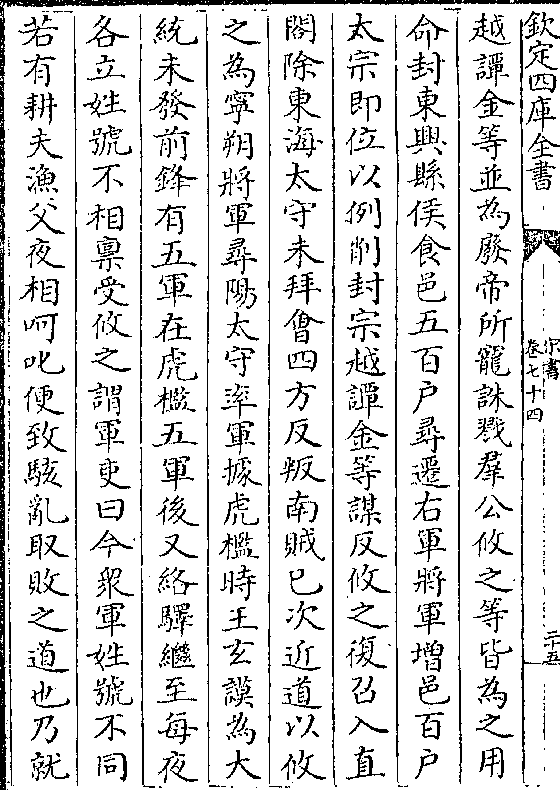 欽定四庫全書
宋書
卷七十四
二十五
越譚金等並為廢帝所寵誅戮羣公攸之等皆為之用
命封東興縣侯食邑五百户尋遷右軍將軍增邑百户
太宗即位以例削封宗越譚金等謀反攸之復召入直
閤除東海太守未拜會四方反叛南賊已次近道以攸
之為寧朔將軍尋陽太守率軍據虎檻時王玄謨為大
統未發前鋒有五軍在虎檻五軍後又絡驛繼至每夜
各立姓號不相稟受攸之謂軍吏曰今衆軍姓號不同
若有耕夫漁父夜相呵叱便致駭亂取敗之道也乃就